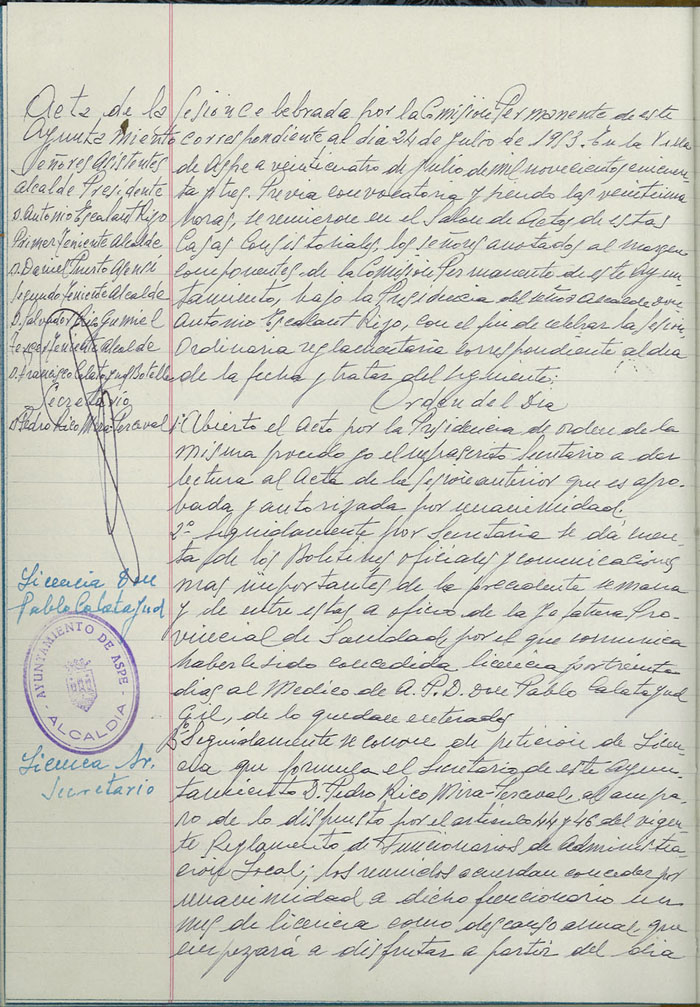 Acta de la Sesion celebrada por la Comisión Permanente de este
Ayuntamiento correspondiente al dia 24 de Julio de 1953. En la Villa
Señores Asistentes
Alcalde Presidente
D. Antonio Escalant Rizo
Primer Teniente Alcalde
D. Daniel Puerto
Segundo Teniente Alcalde
D. Salvador Gumiel
Tercer Teniente Alcalde
D. Francisco Calatayud Botella
Secretario
D. Pedro Rico Mira-Perceval
de Aspe a veinticuatro de Julio de mil novecientos cincuen
ta y tres. Previa convocatoria y siendo las veintiuna
horas, se reunieron en el Salon de Actos de estas
Casas Consistoriales, los señores anotados al margen
componentes de la Comisión Permanente de este Ayun-
tamiento, bajo la Presidencia del señor Alcalde Don
Antonio Escalant Rizo, con el fin de celebrar la sesión
Ordinaria reglamentaria correspondiente al dia
de la fecha y tratar del siguiente:
Orden del Dia
1º Abierto el Acto por la Presidencia de orden de la
misma procedo yo el infrascrito Secretario a dar
lectura al Acta de la sesion anterior que es apro-
bada y autorizada por unanimidad.
2º Seguidamente por Secretaria se dá cuen-
ta de los Boletines oficiales y comunicaciones
mas importantes de la precedente semana
y de entre estas a oficio de la Jefatura Pro-
vincial de Sanidad, por el que comunica
haber sido concedida licencia por treinta
dias al Medico de A. P. D. Don Pablo Calatayud
Gil, de lo quedan enterados
3º Seguidamente se conoce de peticion de Licen-
cia que formula el Secretario de este Ayun-
tamiento D. Pedro Rico Mira-Perceval, al ampa-
ro de lo dispuesto por el articulo 44 y 46 del vigen-
te Reglamento de Funcionarios de Administra-
cion Local; los reunidos acuerdan conceder por
unanimidad a dicho funcionario un
mes de licencia como descanso anual, que
empezará a disfrutar a partir del dia
Licencia Don
Pablo Calatayud
AYUNTAMIENTO DE ASPE
ALCALDIA
Licencia Sr.
Secretario